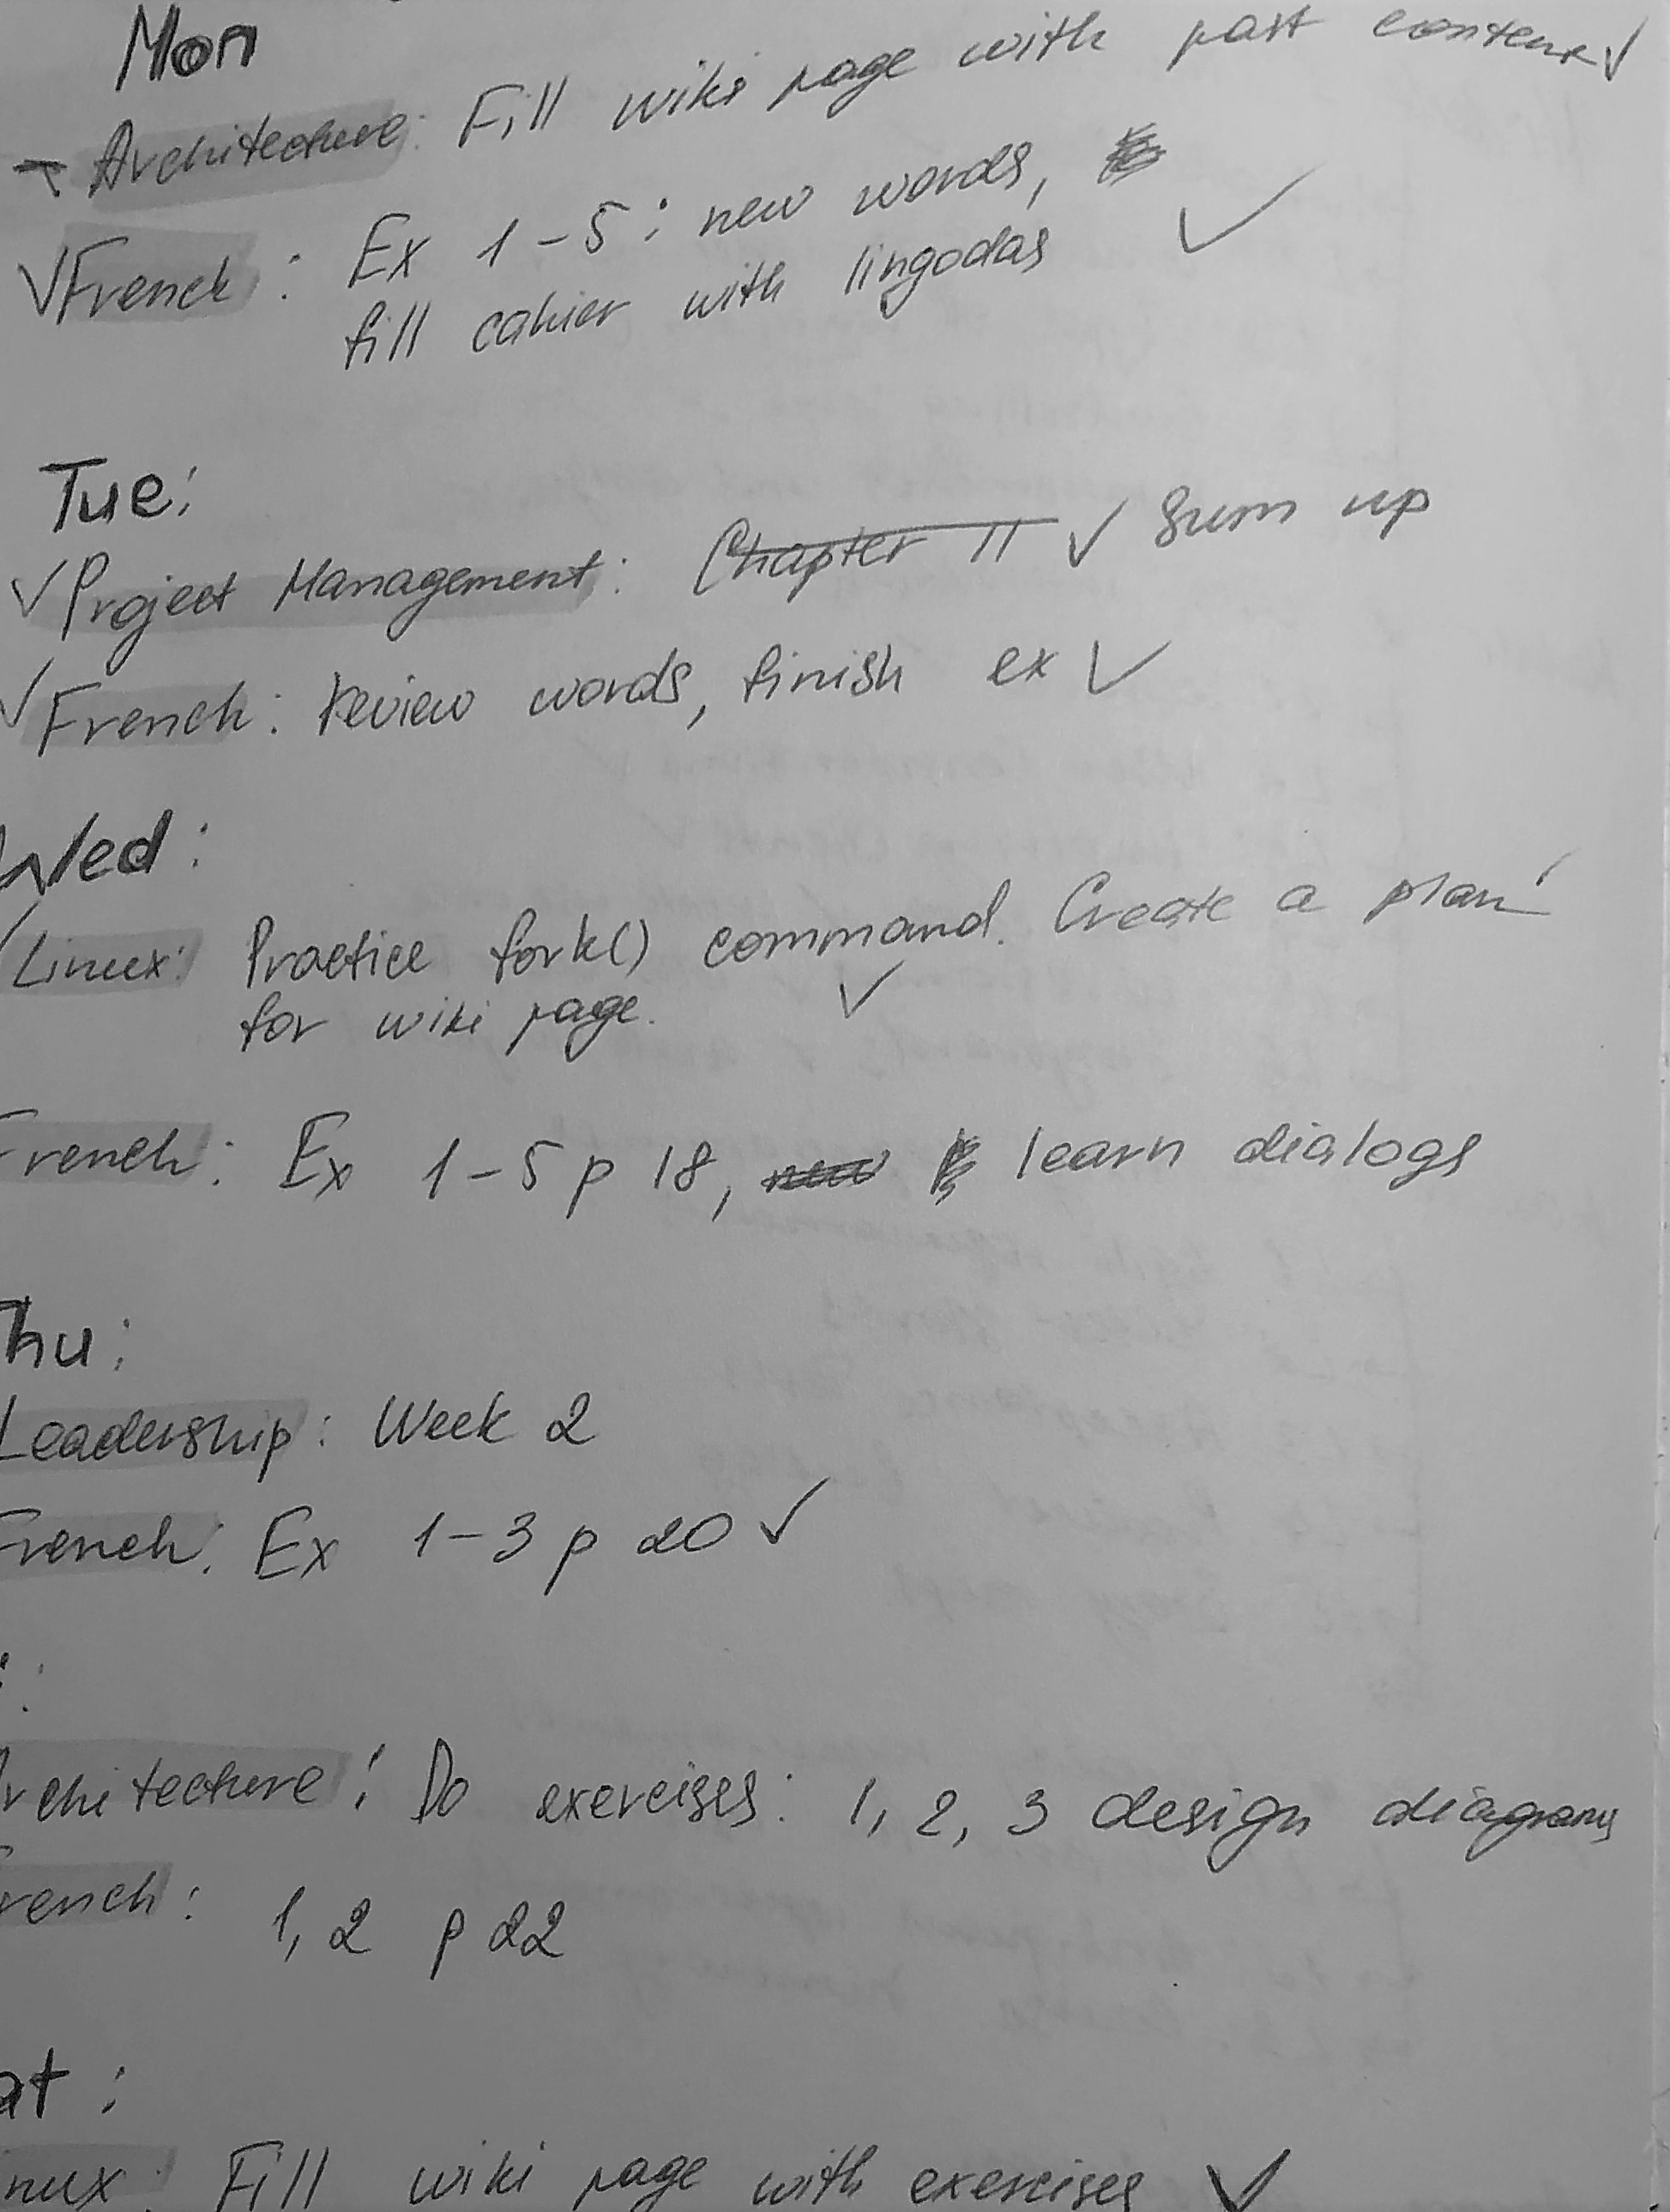 Mon
- Architecture: Fill wiki page with past content ✓
✓ French: Ex 1-5: new words,
fill cahier with lingodas ✓
Tue:
✓ Project Management: Chapter 11 ✓ Sum up
✓ French: review words, finish ex ✓
Wed:
✓ Linux: Practice fork() command. Create a plan
for wiki page. ✓
French: Ex 1-5 p 18, new learn dialogs
Thu:
Leadership: Week 2
French: Ex 1-3 p 20 ✓
:
Architecture: Do exercises: 1, 2, 3 design diagrams
rench: 1, 2 p 22
at:
nux: Fill wiki page with exercises ✓